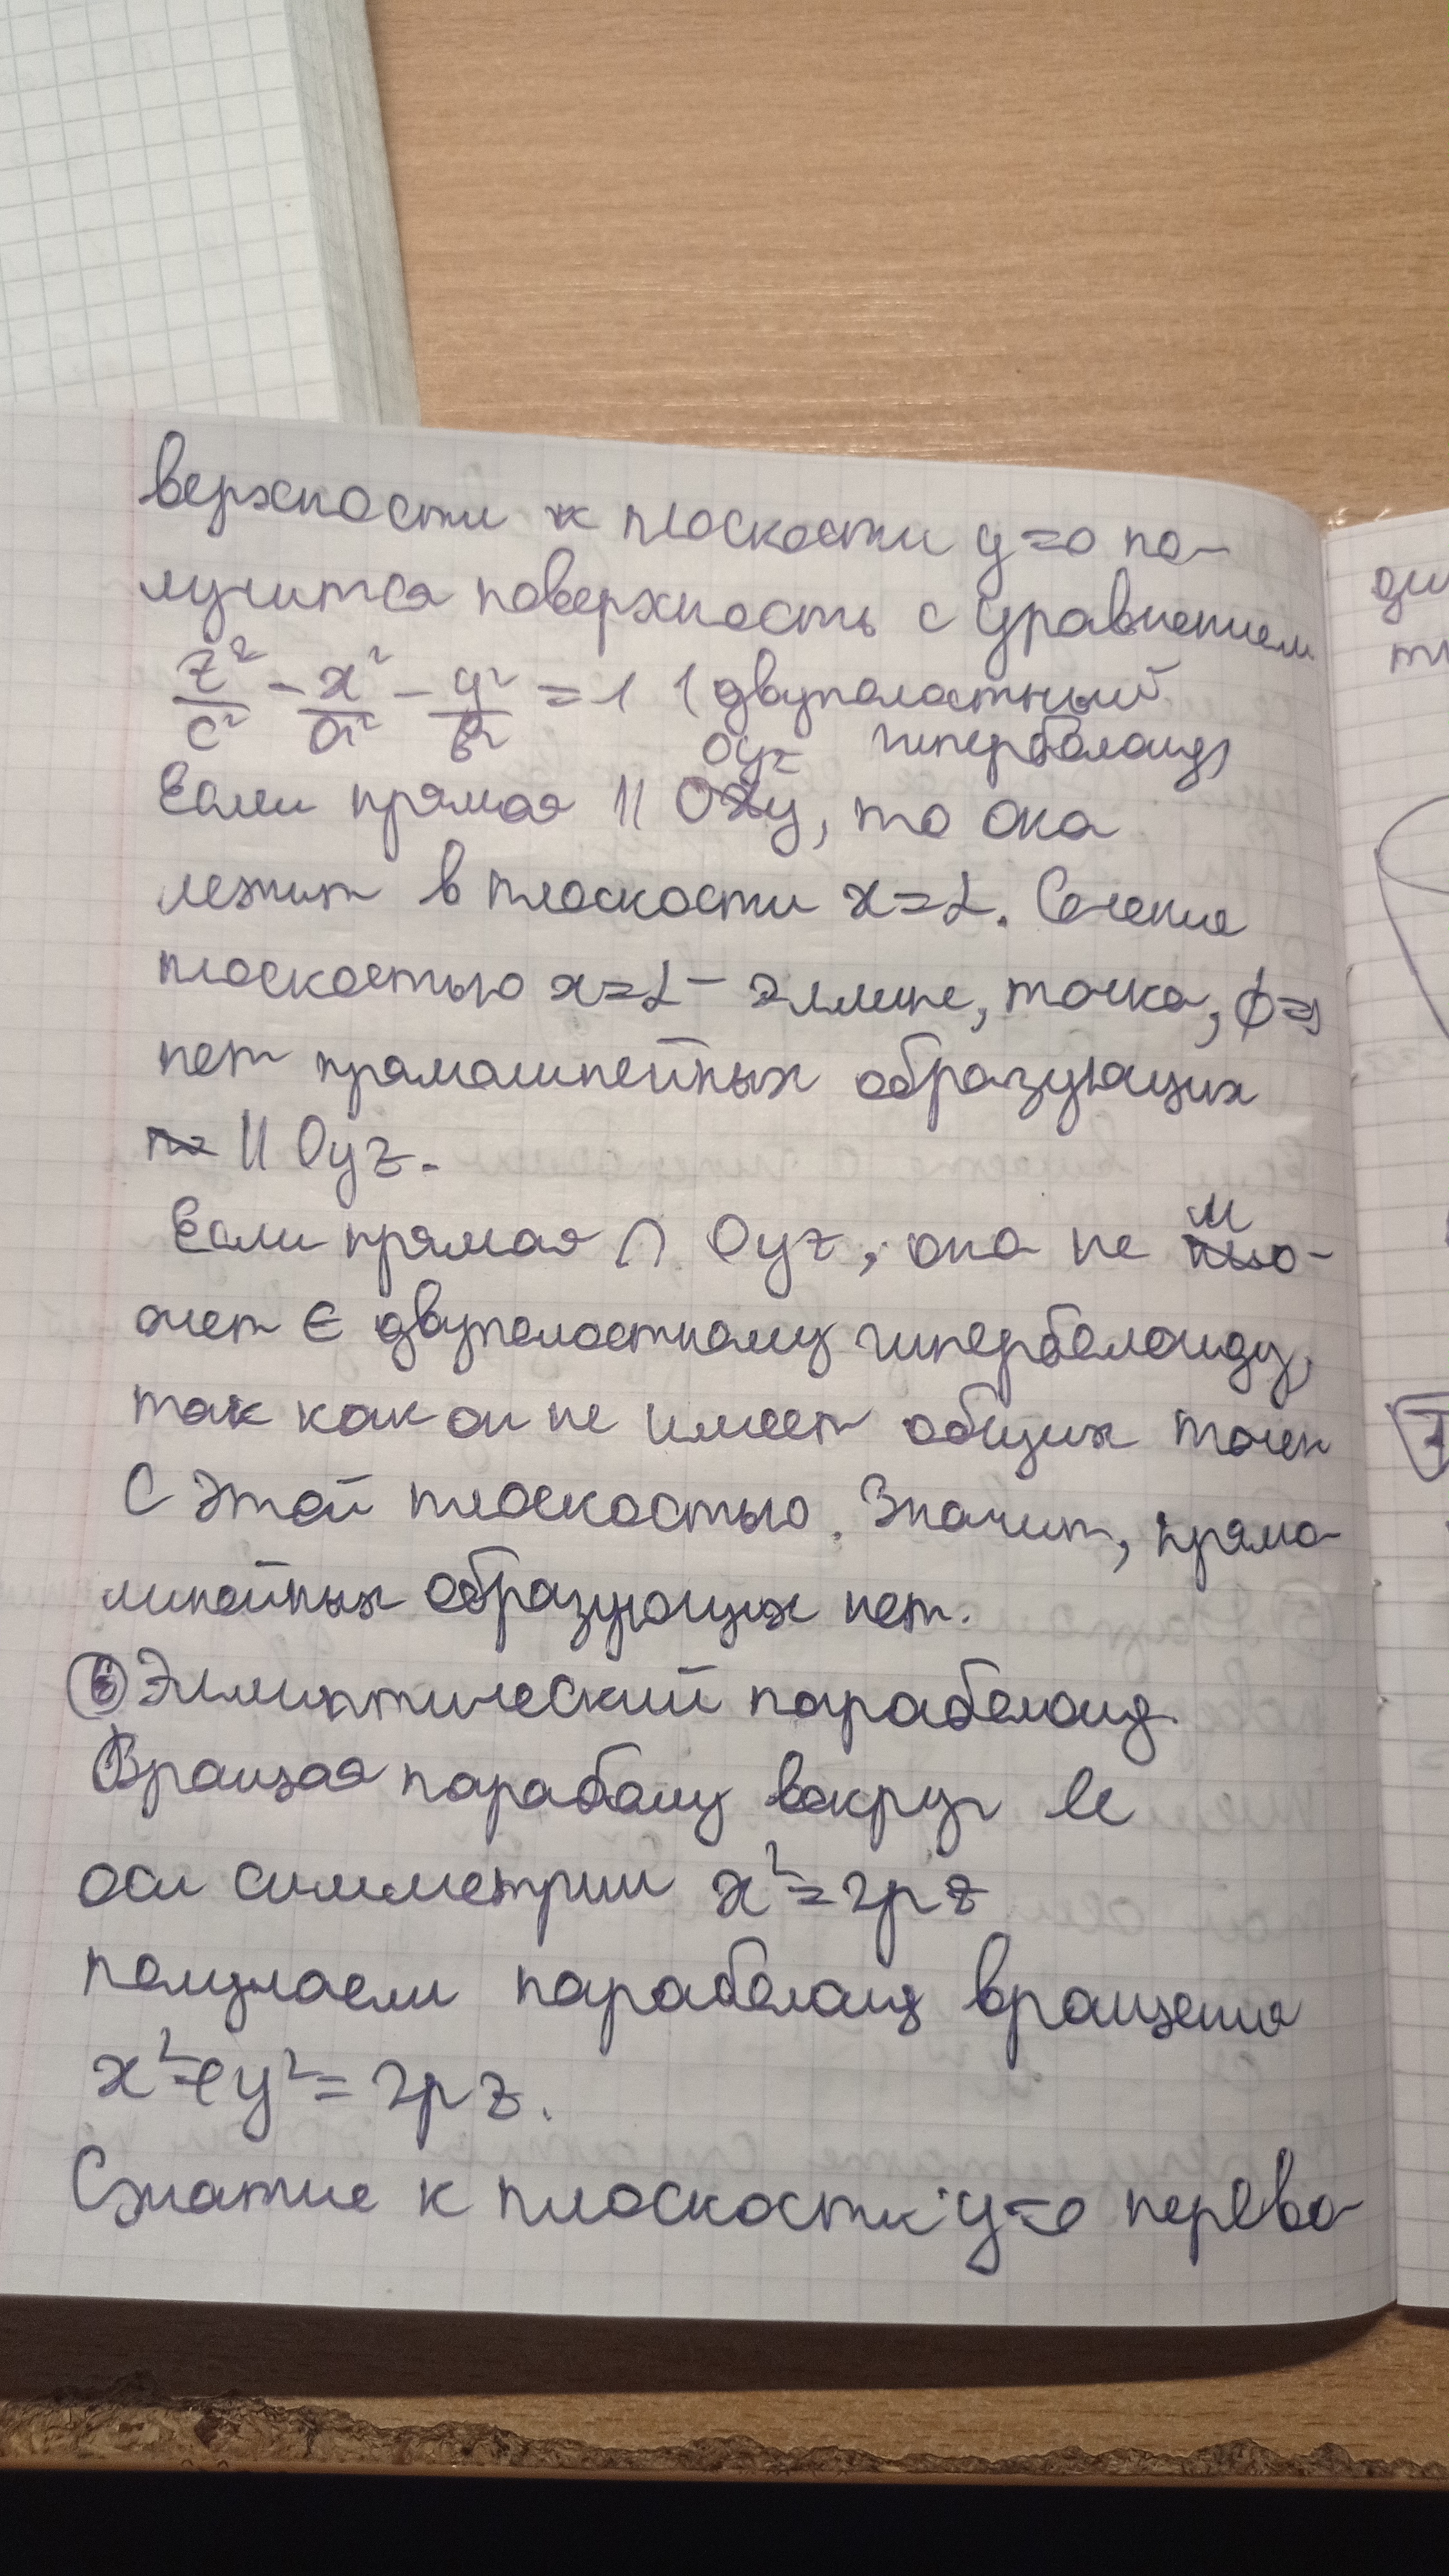 верхности к плоскости y=0 по-
лучится поверхность с уравнением
z²/c² - x²/a² - y²/b² = 1 (двуполостный
гиперболоид)
Oyz
Если прямая || Oxy, то она
лежит в плоскости x=α. Сечение
плоскостью x=α - эллипс, точка, ∅ ⇒
нет прямолинейных образующих
|| Oyz.
Если прямая ∩ Oyz, она не мо-
жет ∈ двуполостному гиперболоиду,
так как он не имеет общих точек
с этой плоскостью. Значит, прямо-
линейных образующих нет.
⑥ Эллиптический параболоид
Вращая параболу вокруг её
оси симметрии x²=2pz
получаем параболоид вращения
x²+y²=2pz.
Сжатие к плоскости y=0 перево-
ди
ти